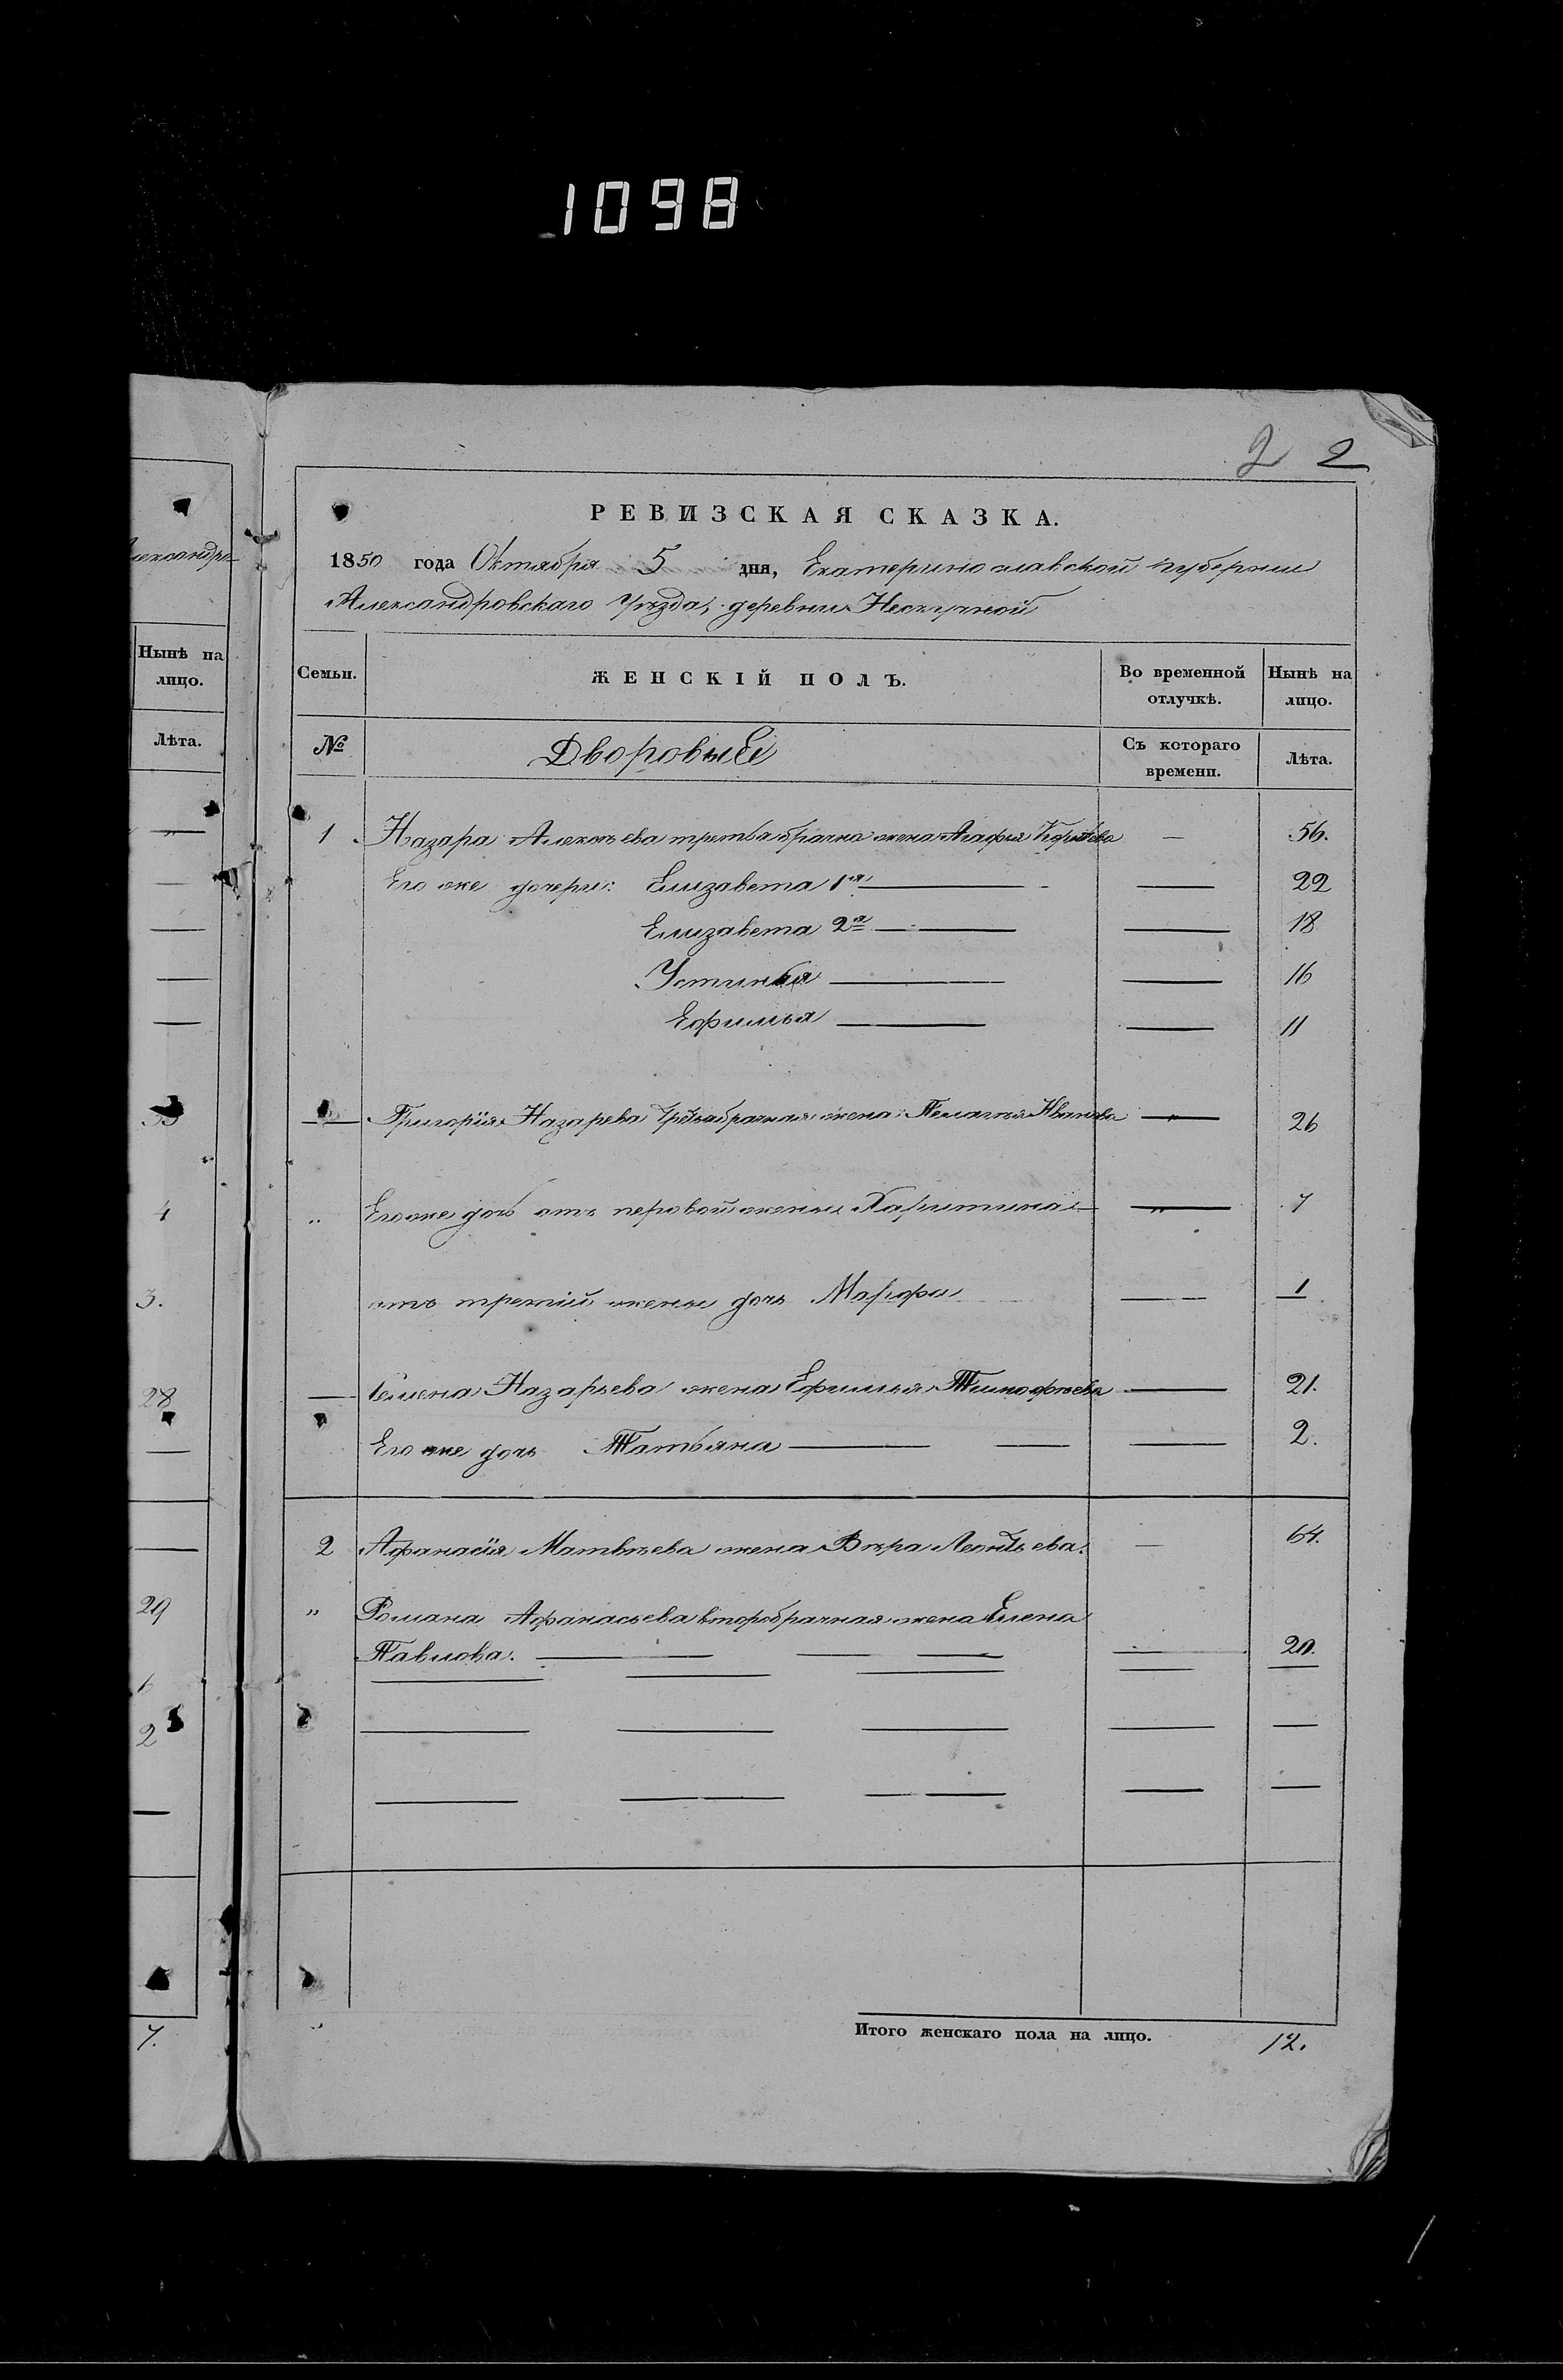 1098
2 2
лександро
Нынѣ на
лицо.
Лѣта.
4
3.
28
29
2
7.
РЕВИЗСКАЯ СКАЗКА.
1850 года Октября 5 дня, Екатеринославской губернии
Александровскаго Уѣзда, деревни Нескучной
Семьи. ЖЕНСКІЙ ПОЛЪ. Во временной отлучкѣ. Нынѣ на лицо.
№ Дворовые Съ котораго времени. Лѣта.
1 Назара Алексѣева третьебрачна жена Агафья — 56.
Его же дочери: Елизавета 1я — — 22
Елизавета 2я — — 18
Устинья — — 16
Ефимья — — 11
— Григорія Назарева третьебрачная жена Пелагея Иванова — 26
" Его же дочь отъ первой жены Харитина — — 7
отъ третій жены дочь Марфа — 1
— Семена Назарьева жена Ефимья Тимофѣева — 21.
Его же дочь Татьяна — — — 2.
2 Афанасія Матвѣева жена Вѣра Леонтьева. — 64.
" Романа Афанасьева второбрачная жена Елена
Павлова. — — — — 20.
Итого женскаго пола на лицо. 12.